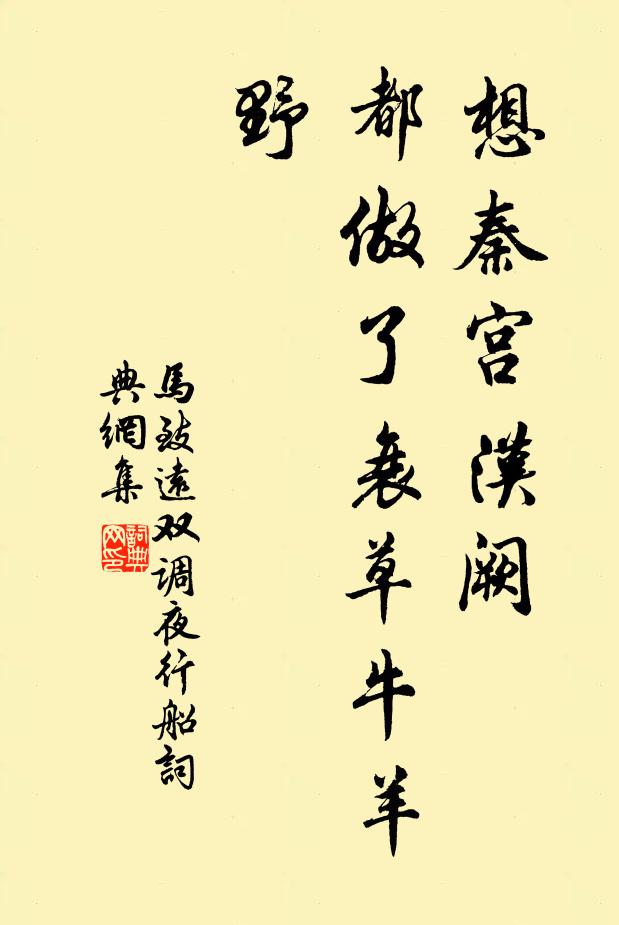 想秦宫漢阙
都做了衰草牛羊
野
馬致遠双调夜行船詞
典網集
詞典
网印